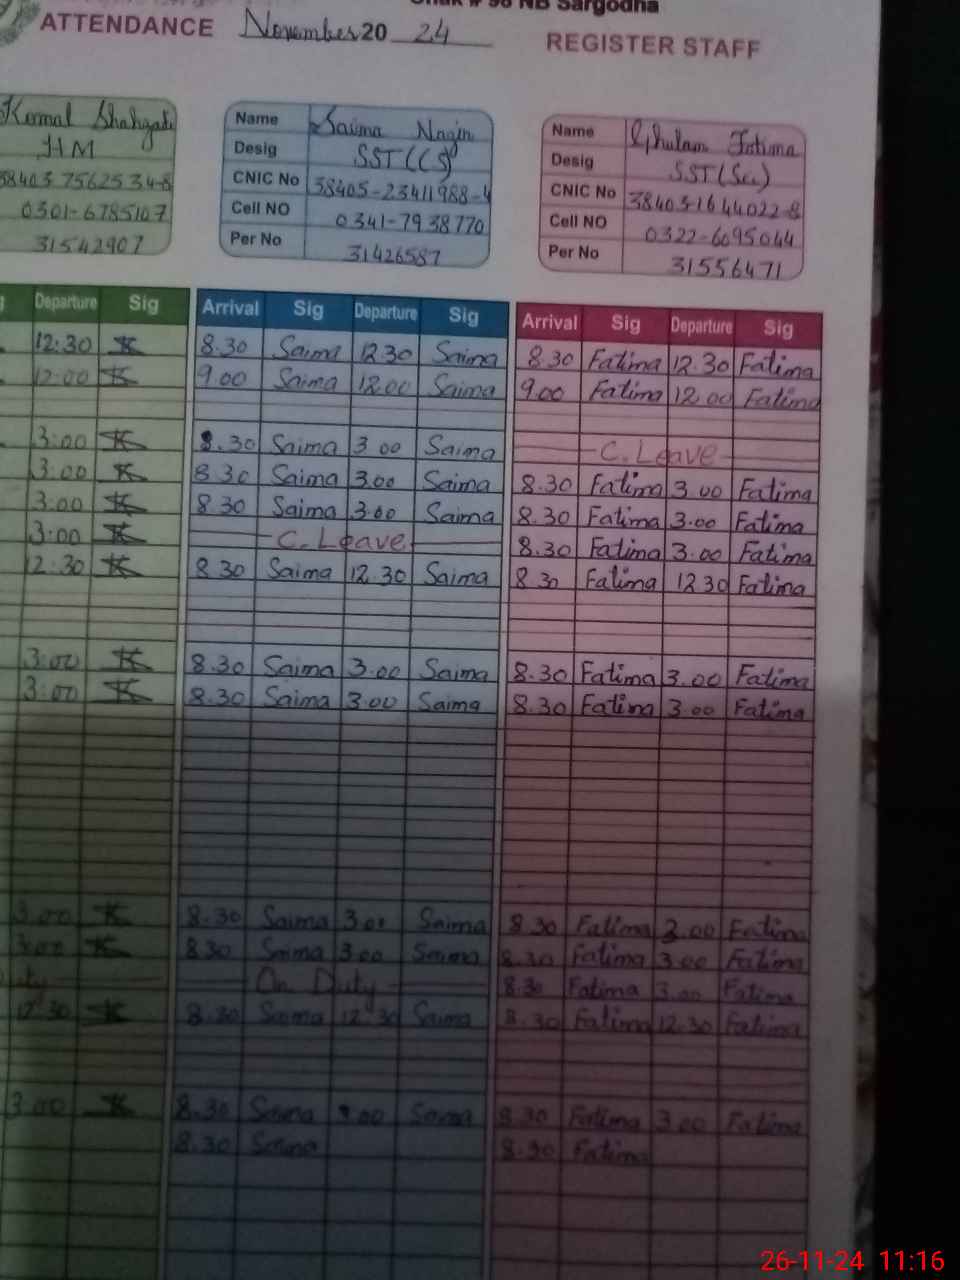 Chak # 98 NB Sargodha
ATTENDANCE November 20 24 REGISTER STAFF
Komal Shahzadi
HM
0301-6785107
31542907
Name Saima Nagin
Desig SST (CS)
CNIC No 38405-23411988-4
Cell NO 0341-7938770
Per No 31426587
Name Ghulam Fatima
Desig SST (Sci)
CNIC No 38403-1644022-8
Cell NO 0322-6095044
Per No 31556471
Departure Sig Arrival Sig Departure Sig Arrival Sig Departure Sig
12:30 K 8.30 Saima 12.30 Saima 8.30 Fatima 12.30 Fatima
12:00 K 9.00 Saima 12.00 Saima 9.00 Fatima 12.00 Fatima
3:00 K 8.30 Saima 3.00 Saima C. Leave
3:00 K 8.30 Saima 3.00 Saima 8.30 Fatima 3.00 Fatima
3:00 K 8.30 Saima 3.00 Saima 8.30 Fatima 3.00 Fatima
3:00 K C. Leave 8.30 Fatima 3.00 Fatima
12:30 K 8.30 Saima 12.30 Saima 8.30 Fatima 12.30 Fatima
3:00 K 8.30 Saima 3.00 Saima 8.30 Fatima 3.00 Fatima
3:00 K 8.30 Saima 3.00 Saima 8.30 Fatima 3.00 Fatima
3.00 K 8.30 Saima 3.00 Saima 8.30 Fatima 3.00 Fatima
3:00 K 8.30 Saima 3.00 Saima 8.30 Fatima 3.00 Fatima
uty On Duty 8.30 Fatima 3.00 Fatima
12:30 K 8.30 Saima 12.30 Saima 8.30 Fatima 12.30 Fatima
3.00 K 8.30 Saima 3.00 Saima 8.30 Fatima 3.00 Fatima
8.30 Saima 8.30 Fatima
26-11-24 11:16